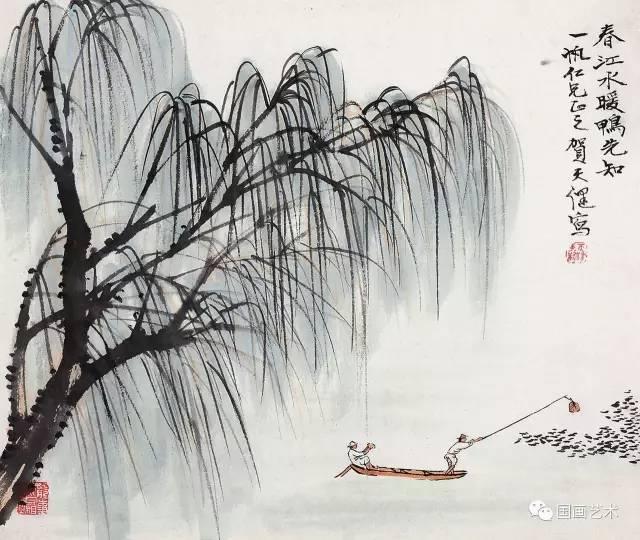 春江水暖鴨先知
一帆仁兄正之賀天健寫
国画艺术